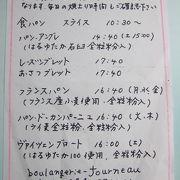 なります。毎日の焼上り時間もご確認下さい
食パン スライス 10:30〜
パン・アングレ 14:40(土15:00)
(はるゆたか石臼全粒粉入)
レーズンブレット 17:40
おさつブレット 17:40
フランスパン 16:40(月水金)
(フランス産小麦使用、全粒粉入)
パン・ド・カンパーニュ 16:40(火・木)
(ライ麦全粒粉、全粒粉入)
ヴァイツェンブロート 16:00(土)
(はるゆたか100使用、全粒粉入)
boulangerie-fourneau